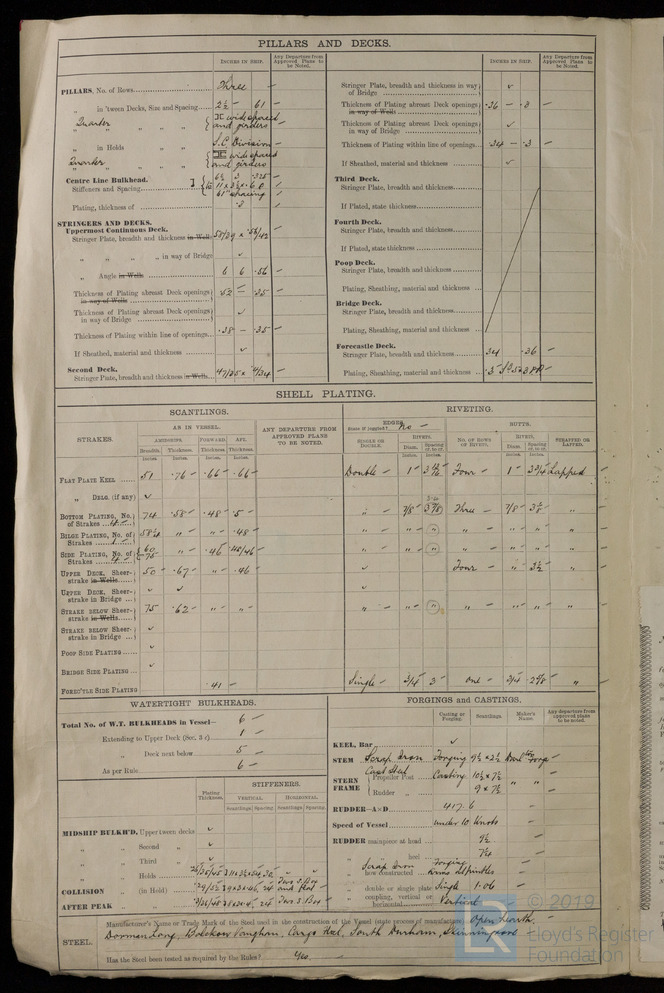 PILLARS AND DECKS.
INCHES IN SHIP.
Any Departure from Approved Plans to be Noted.
PILLARS, No. of Rows Three
„ in 'tween Decks, Size and Spacing 2½ — 61
Quarter „ „ wide spaced and girders
„ in Holds S.C. Division
Quarter „ „ wide spaced and girders
Centre Line Bulkhead.
Stiffeners and Spacing 61" spacing
Plating, thickness of .3
STRINGERS AND DECKS.
Uppermost Continuous Deck.
Stringer Plate, breadth and thickness in Wells
„ „ „ „ in way of Bridge
„ Angle in Wells 6 6 .56
Thickness of Plating abreast Deck openings in way of Wells .52 — .35
Thickness of Plating abreast Deck openings in way of Bridge
Thickness of Plating within line of openings .38 — .35
If Sheathed, material and thickness
Second Deck.
Stringer Plate, breadth and thickness in Wells
INCHES IN SHIP.
Any Departure from Approved Plans to be Noted.
Stringer Plate, breadth and thickness in way of Bridge
Thickness of Plating abreast Deck openings in way of Wells .36 — .3
Thickness of Plating abreast Deck openings in way of Bridge
Thickness of Plating within line of openings .34 — .3
If Sheathed, material and thickness
Third Deck.
Stringer Plate, breadth and thickness
If Plated, state thickness
Fourth Deck.
Stringer Plate, breadth and thickness
If Plated, state thickness
Poop Deck.
Stringer Plate, breadth and thickness
Plating, Sheathing, material and thickness
Bridge Deck.
Stringer Plate, breadth and thickness
Plating, Sheathing, material and thickness
Forecastle Deck.
Stringer Plate, breadth and thickness 34 .36
Plating, Sheathing, material and thickness
SHELL PLATING.
SCANTLINGS.
RIVETING.
STRAKES.
AS IN VESSEL.
ANY DEPARTURE FROM APPROVED PLANS TO BE NOTED.
EDGES. No
State if joggled?
BUTTS.
AMIDSHIPS. FORWARD. AFT.
Breadth. Thickness. Thickness Thickness
SINGLE OR DOUBLE.
RIVETS.
Diam. Spacing cr. to cr.
NO. OF ROWS OF RIVETS.
RIVETS.
Diam. Spacing cr. to cr.
STRAPPED OR LAPPED.
Inches. Inches. Inches. Inches.
FLAT PLATE KEEL 51 .76 .66 .66 Double 1" Four 1" 3¾ Lapped
„ DBLG. (if any)
BOTTOM PLATING, No. of Strakes 4 74 .58 .48 .5 „ 7/8 Three 7/8
BILGE PLATING, No. of Strakes „ „ .48 „ „ „ „ „ „
SIDE PLATING, No. of Strakes 60 75 „ .46 „ „ „ „ „ „
UPPER DECK, Sheerstrake in Wells 50 .67 „ .46 Four „ 3½ „
UPPER DECK, Sheerstrake in Bridge
STRAKE BELOW Sheerstrake in Wells 75 .62 „ „ „ „ „ „ „ „ „
STRAKE BELOW Sheerstrake in Bridge
POOP SIDE PLATING
BRIDGE SIDE PLATING
FOREC'TLE SIDE PLATING .41 Single 3/4 3 one 3/4 „
WATERTIGHT BULKHEADS.
Total No. of W.T. BULKHEADS in Vessel— 6
Extending to Upper Deck (Sec. 3 c) 1
„ Deck next below 5
As per Rule 6
Plating Thickness.
STIFFENERS.
VERTICAL. HORIZONTAL.
Scantlings Spacing Scantlings Spacing.
MIDSHIP BULKH'D, Upper tween decks
„ „ Second „
„ „ Third „
„ „ Holds
COLLISION „ (in Hold)
AFTER PEAK „ „
FORGINGS and CASTINGS.
Casting or Forging. Scantlings. Maker's Name. Any departure from approved plans to be noted.
KEEL, Bar
STEM Scrap Iron Forging
STERN FRAME Cast Steel Propeller Post Casting 10½ x 7½ „ „
Rudder „ 9 x 7½
RUDDER—A×D 417.6
Speed of Vessel under 10 Knots
RUDDER mainpiece at head 9½
„ „ heel
„ how constructed Scrap Iron Forging
„ double or single plate Single 1.06
„ coupling, vertical or horizontal Vertical
STEEL.
Manufacturer's Name or Trade Mark of the Steel used in the construction of the Vessel (state process of manufacture) Open Hearth.
Dorman Long, Bolckow Vaughan, Cargo Fleet, South Durham, Skinningrove
Has the Steel been tested as required by the Rules? Yes.
© 2019
Lloyd's Register
Foundation